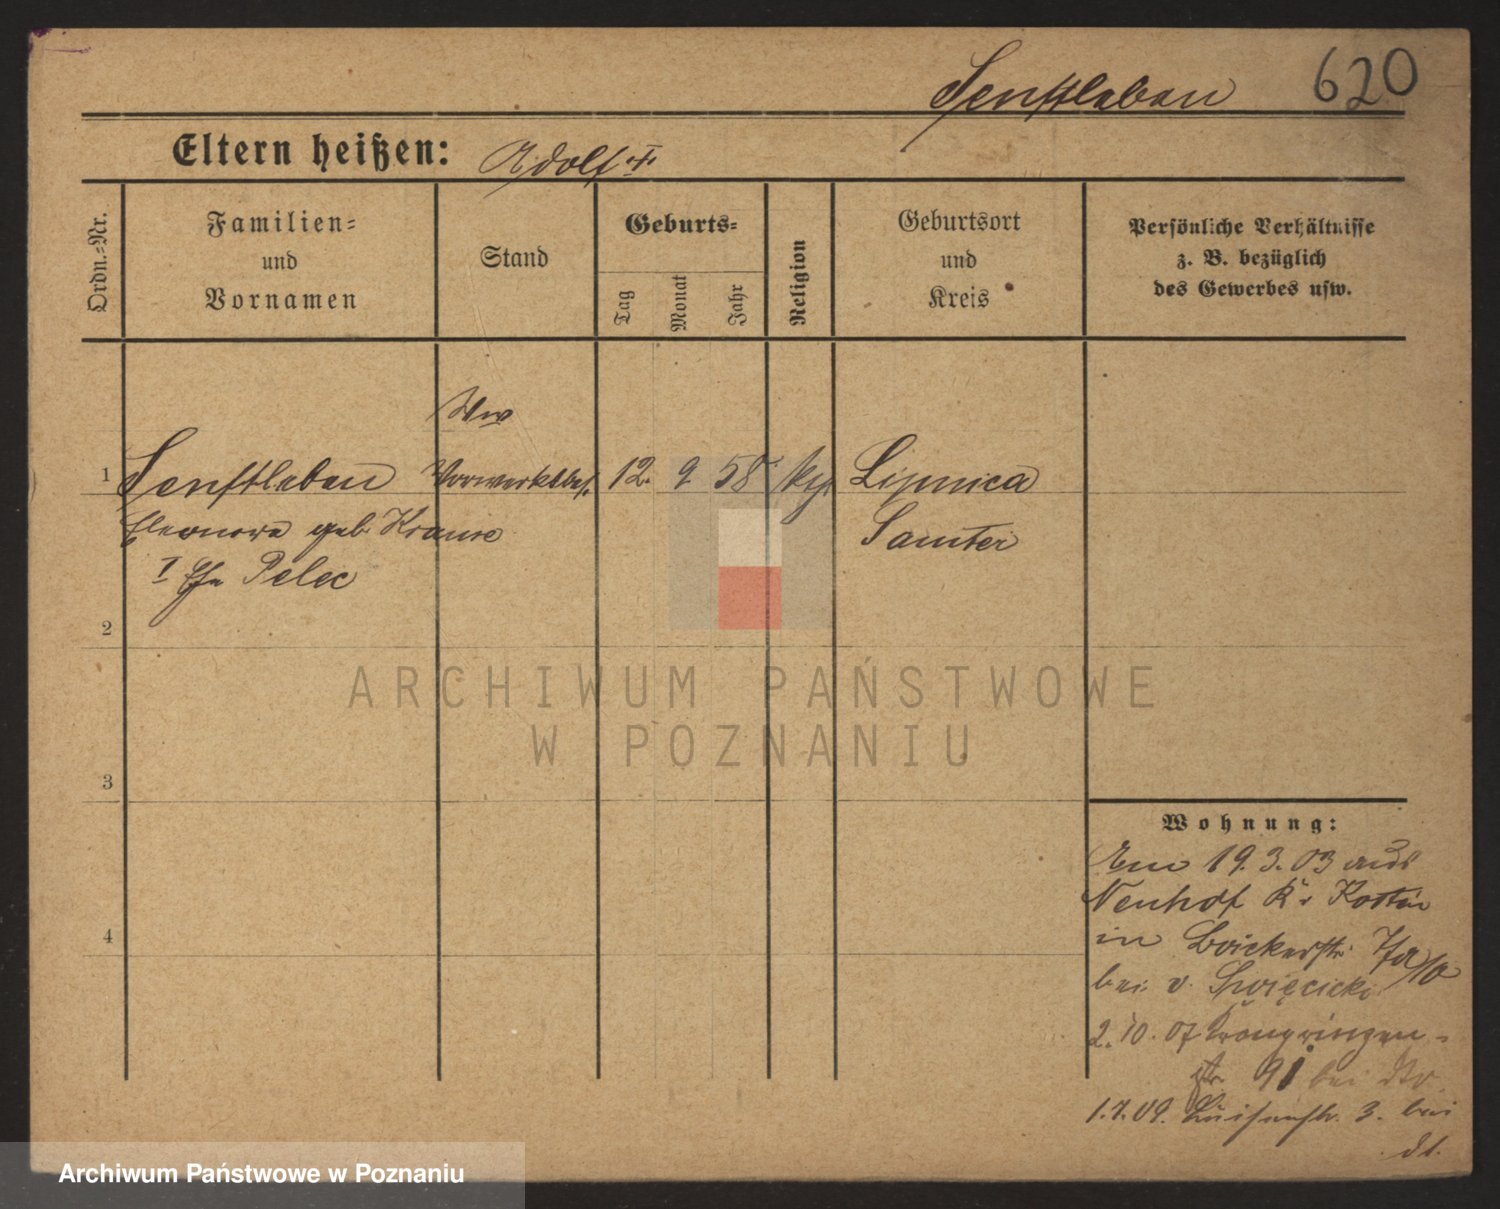 Senftleben 620
Eltern heißen: Adolf †
Ordn.-Nr.
Familien-
und
Vornamen
Stand
Geburts-
Tag
Monat
Jahr
Religion
Geburtsort
und
Kreis
Persönliche Verhältnisse
z. B. bezüglich
des Gewerbes usw.
Ww
1 Senftleben Vorwerksbes. 12. 9 58 Lipnica
Eleonore geb Krause Samter
I Ehe Pelec
2
3
4
Wohnung:
19. 3. 03 aus
Neuhof Kr Kosten
in
bei v. Święcicki
2. 10. 07 Kronprinzen-
str. 91 bei
1. 7. 09. Luisenstr. 3. bei
ARCHIWUM PAŃSTWOWE
W POZNANIU
Archiwum Państwowe w Poznaniu